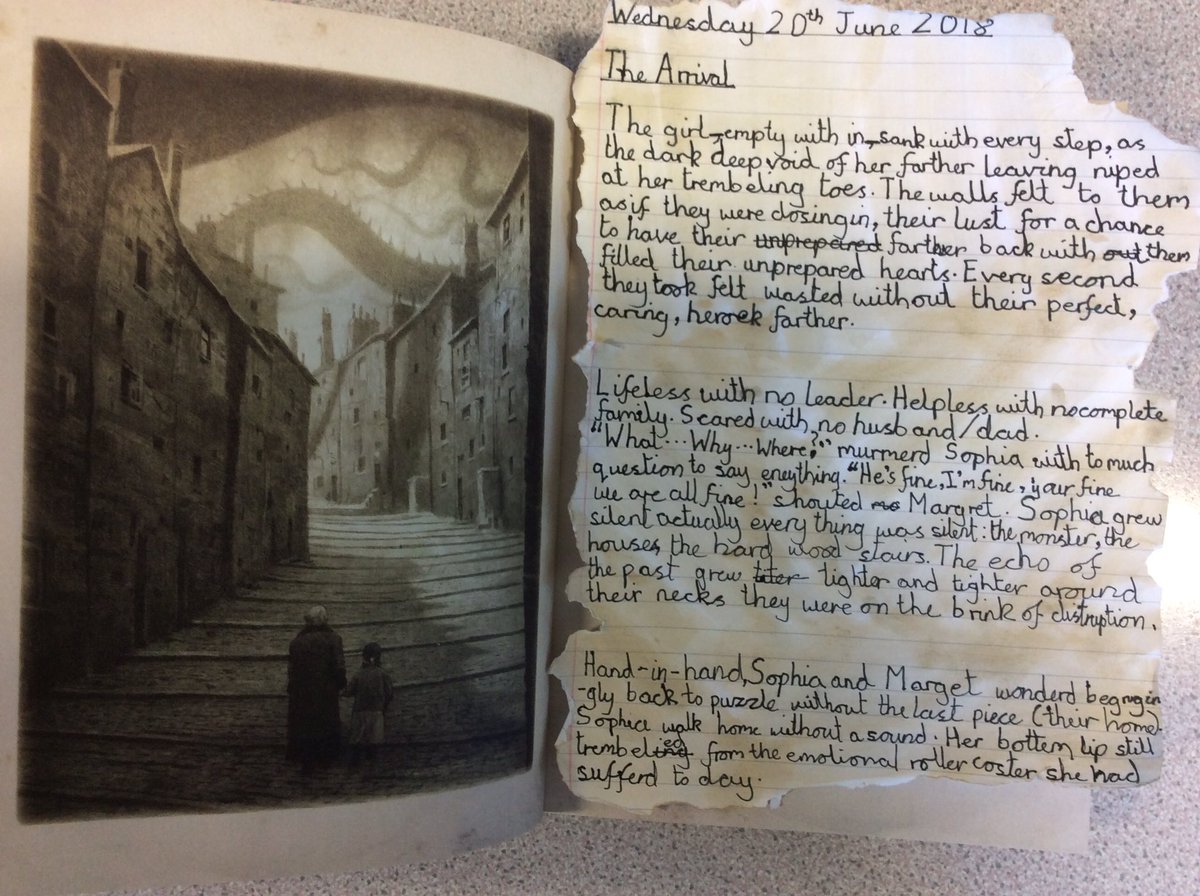 Wednesday 20th June 2018
The Arrival
The girl-empty with in-sank with every step, as
the dark deep void of her farther leaving niped
at her trembeling toes. The walls felt to them
as if they were closing in, their lust for a chance
to have their unprepared farther back with out them
filled their unprepared hearts. Every second
they took felt wasted without their perfect,
caring, heroek farther.
Lifeless with no leader. Helpless with no complete
family. Scared with no husband/dad.
"What...Why...Where?" murmerd Sophia with to much
question to say eneything. "He's fine, I'm fine, your fine
we are all fine!" shouted Margret. Sophia grew
silent actually every thing was silent: the monster, the
houses, the hard wood stairs. The echo of
the past grew titer tighter and tighter around
their necks they were on the brink of distruption.
Hand-in-hand, Sophia and Marget wonderd begrugin
-gly back to puzzle without the last piece (their home).
Sophia walk home without a sound. Her bottem lip still
trembeled from the emotional roller coster she had
sufferd to day.